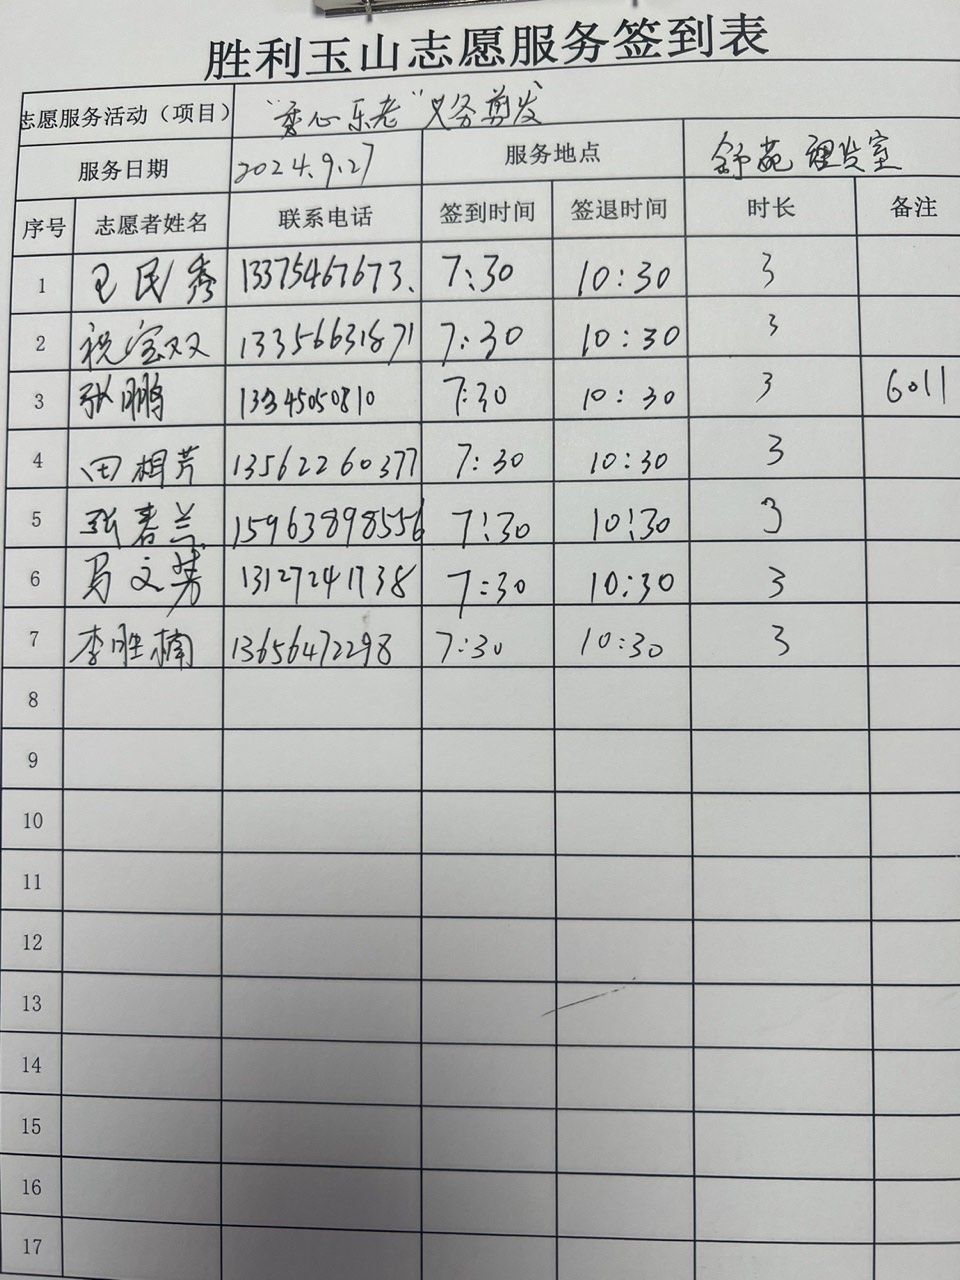 胜利玉山志愿服务签到表
志愿服务活动（项目） “秀心乐老”义务剪发
服务日期 2024.9.27 服务地点 舒苑理发室
序号 志愿者姓名 联系电话 签到时间 签退时间 时长 备注
1 王民秀 13375467673. 7:30 10:30 3
2 祝宝双 13356631871 7:30 10:30 3
3 张鹏 13345050810 7:30 10:30 3 6011
4 田相芹 13562260377 7:30 10:30 3
5 张春兰 15963898556 7:30 10:30 3
6 马文 13127241738 7:30 10:30 3
7 李胜楠 13656472298 7:30 10:30 3
8
9
10
11
12
13
14
15
16
17